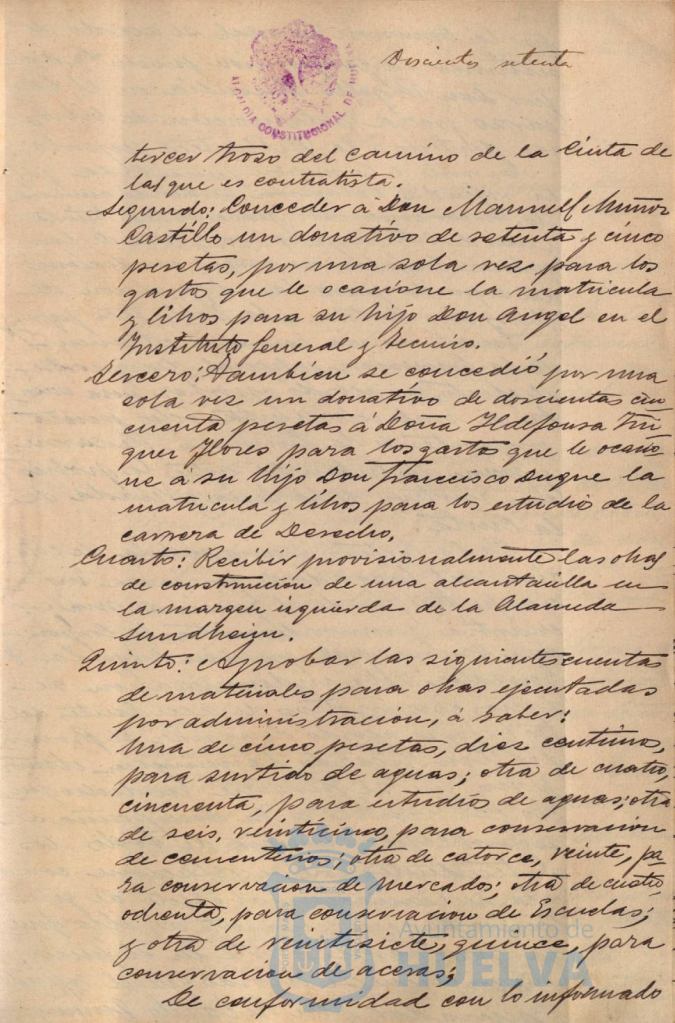 ALCALDIA CONSTITUCIONAL DE HUELVA
Doscientos setenta
tercer trozo del camino de la Cinta de
las que es contratista.
Segundo: Conceder á Don Manuel Muñoz
Castillo un donativo de setenta y cinco
pesetas, por una sola vez para los
gastos que le ocasione la matricula
y libros para su hijo Don Angel en el
Instituto General y Tecnico.
Tercero: Tambien se concedió por una
sola vez un donativo de doscientas cin
cuenta pesetas á Doña Ildefonsa Iñi
guez Flores para los gastos que le ocasio
ne á su hijo Don Francisco Duque la
matricula y libros para los estudio de la
carrera de Derecho.
Cuarto: Recibir provisionalmente las obras
de construcción de una alcantarilla en
la margen izquierda de la Alameda
Sundheim.
Quinto: Aprobar las siguientes cuentas
de materiales para obras ejecutadas
por administración, á saber:
Una de cinco pesetas, diez centimos,
para surtido de aguas; otra de cuatro,
cincuenta, para estudios de aguas; otra
de seis, veinticinco, para conservacion
de cementerios; otra de catorce, veinte, pa-
ra conservacion de Mercados; otra de cuatro
ochenta, para conservacion de Escuelas;
y otra de veintisiete, quince, para
conservacion de aceras;
De conformidad con lo informado
Ayuntamiento de
HUELVA